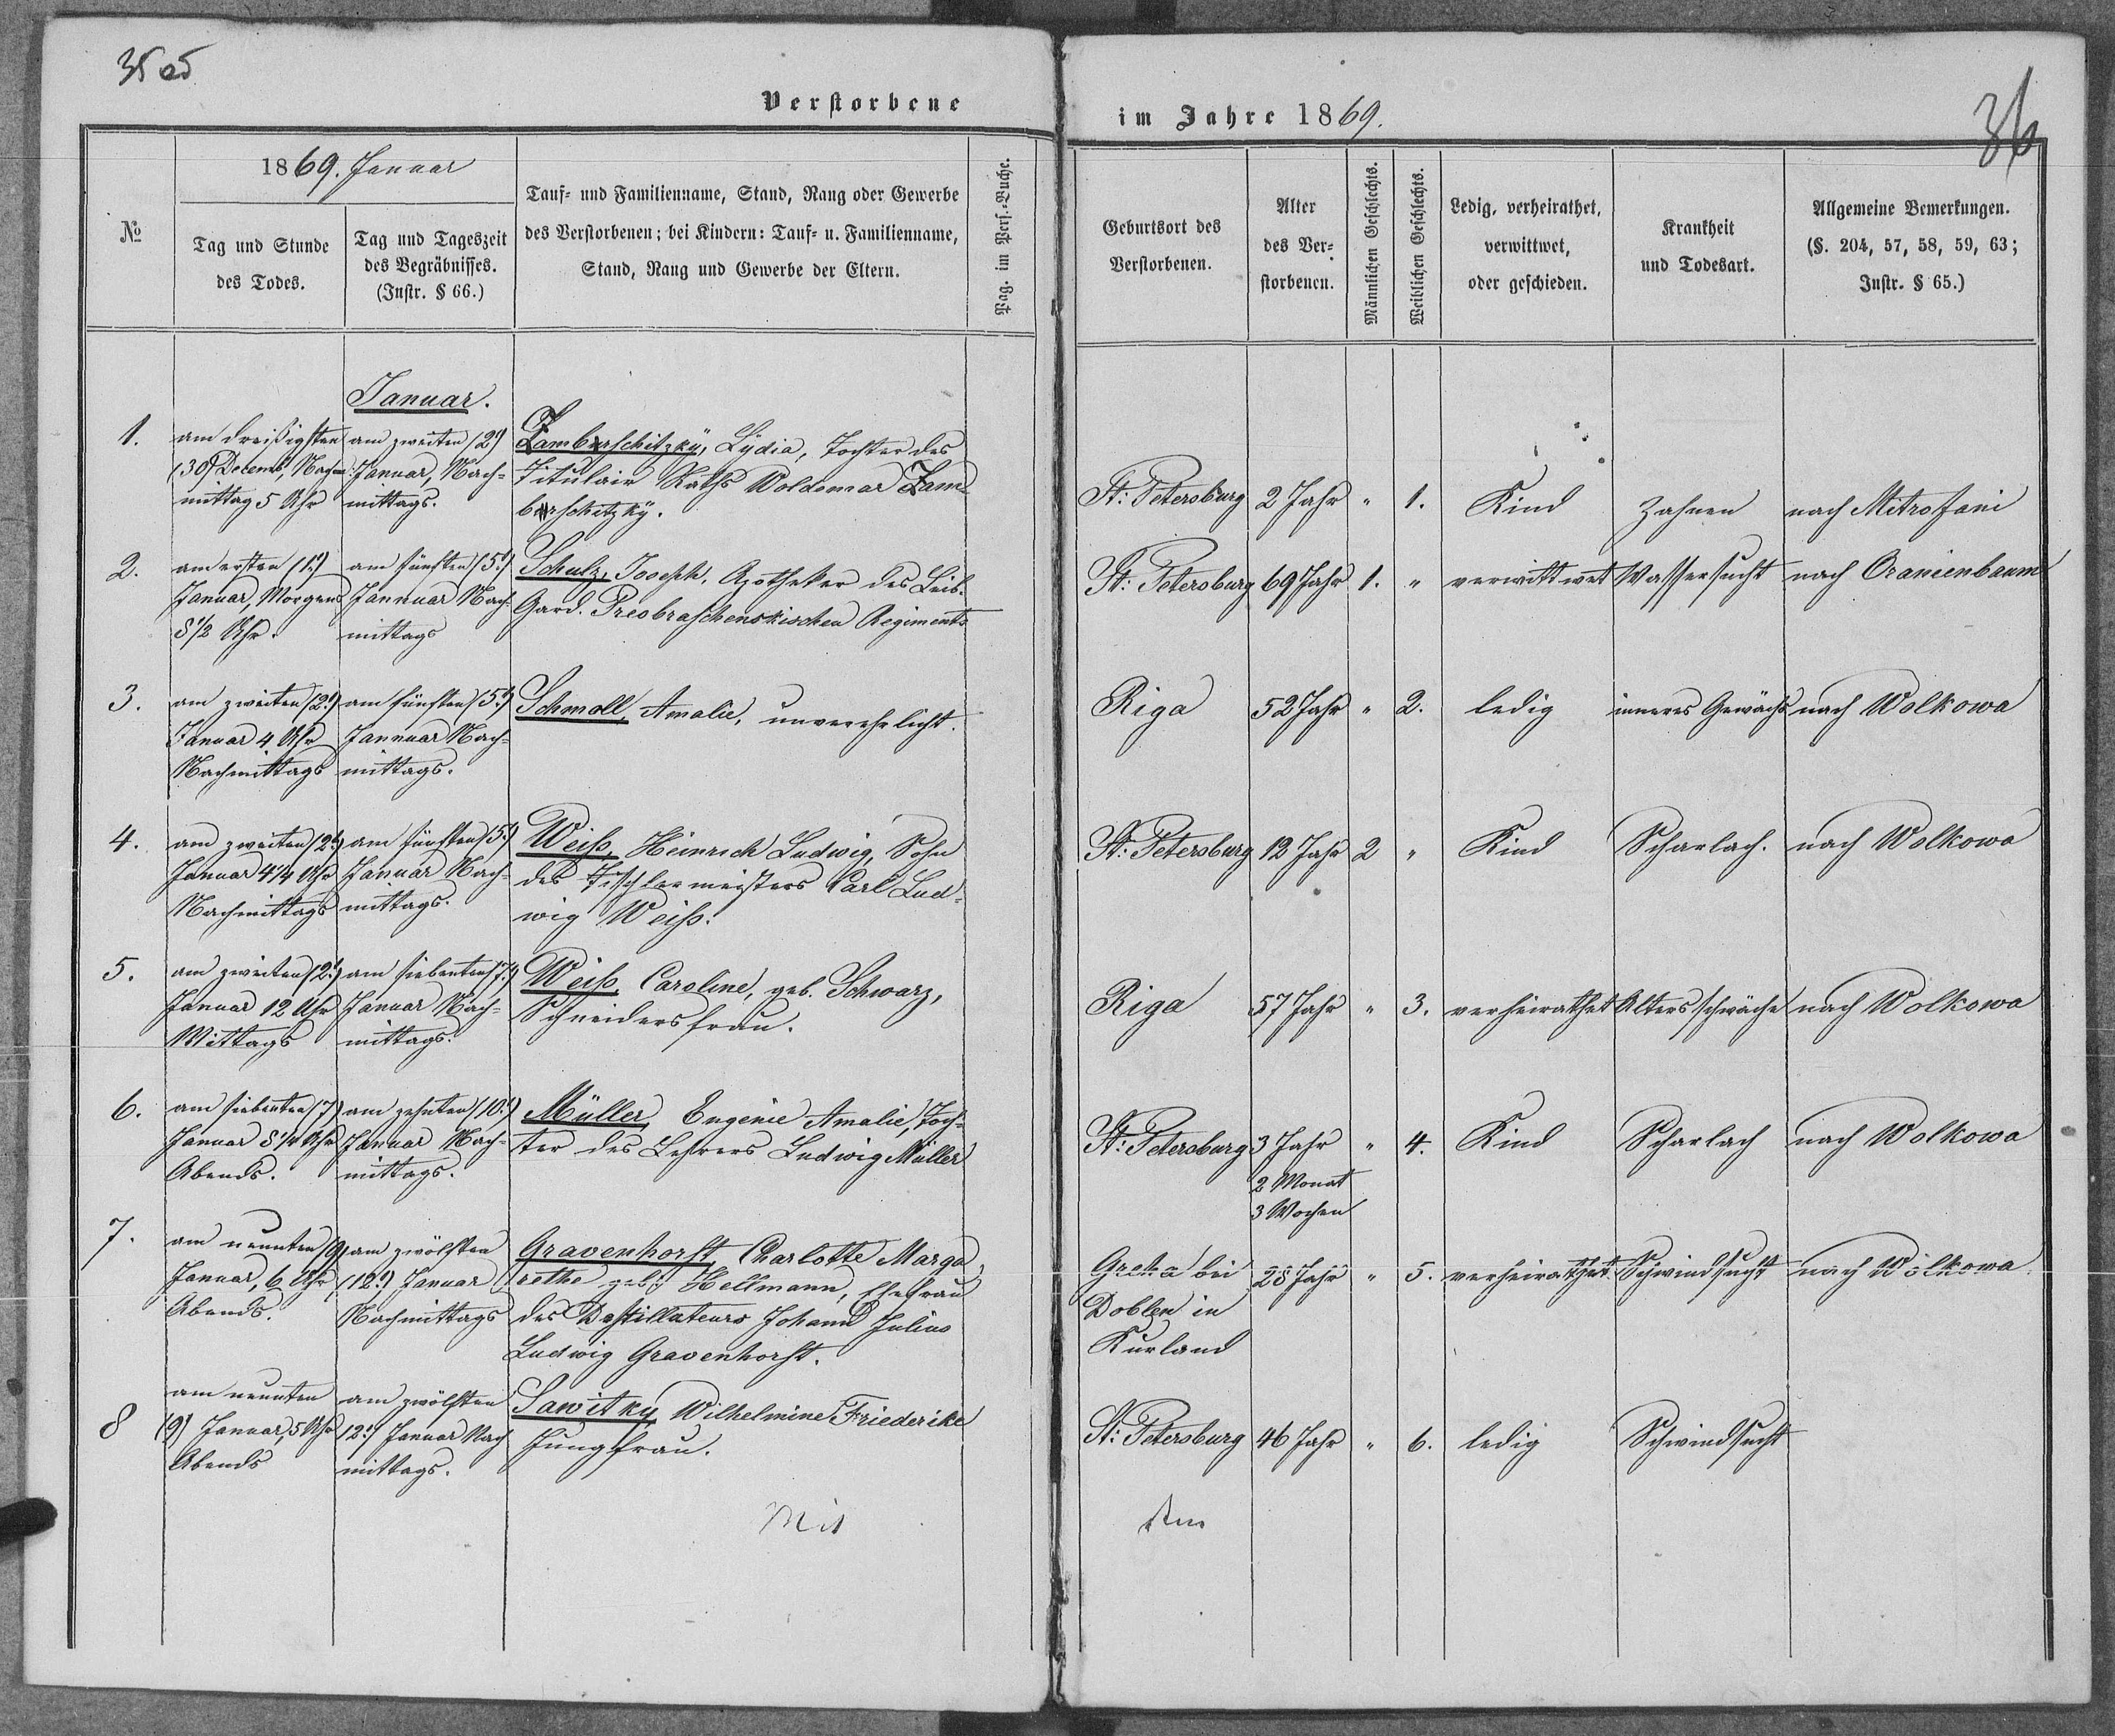 35 об
Verstorbene
im Jahre 1869.
36
№
1869. Januar
Tag und Stunde
des Todes.
Tag und Tageszeit
des Begräbnisses.
(Instr. § 66.)
Tauf- und Familienname, Stand, Rang oder Gewerbe
des Verstorbenen; bei Kindern: Tauf- u. Familienname,
Stand, Rang und Gewerbe der Eltern.
Pag. im Pers.-Buche.
Geburtsort des
Verstorbenen.
Alter
des Ver-
storbenen.
Männlichen Geschlechts.
Weiblichen Geschlechts.
Ledig, verheirathet,
verwittwet,
oder geschieden.
Krankheit
und Todesart.
Allgemeine Bemerkungen.
(§. 204, 57, 58, 59, 63;
Instr. § 65.)
Januar.
1.
am dreißigsten
(30) Decemb., Nach-
mittag 5 Uhr
am zweiten (2)
Januar, Nach-
mittags.
Lydia, Tochter des
Titulair Raths Woldemar Zam-
St: Petersburg
2 Jahr
"
1.
Kind
Zahnen
nach Mitrofani
2.
am ersten (1.)
Januar, Morgens
8 1/2 Uhr.
am fünften (5.)
Jannuar Nach-
mittags
Schulz, Joseph, Apotheker des Leib.
Gard. Preobraschenskischen Regiments
St: Petersburg
69 Jahr
1.
"
verwittwet
Wassersucht
nach Oranienbaum
3.
am zweiten (2.)
Januar 4 Uhr
Nachmittags
am fünften (5.)
Jannuar Nach-
mittags.
Schmoll, Amalie, unverehelicht.
Riga
52 Jahr
"
2.
ledig
inneres Gewächs
nach Wolkowa
4.
am zweiten (2.)
Januar 4 1/4 Uhr
Nachmittags
am fünften (5.)
Januar Nach-
mittags.
Weiss, Heinrich Ludwig, Sohn
des Tischlermeisters Carl Lud-
wig Weiss.
St: Petersburg
12 Jahr
2
"
Kind
Scharlach.
nach Wolkowa
5.
am zweiten (2.)
Januar 12 Uhr
Mittags
am siebenten (7.)
Januar Nach-
mittags.
Weiss, Caroline, geb. Schwarz,
Schneidersfrau.
Riga
57 Jahr
"
3.
verheirathet
Altersschwäche
nach Wolkowa
6.
am siebenten (7)
Januar Uhr
Abends.
am zehnten (10.)
Januar Nach-
mittags.
Müller, Eugenie Amalie, Toch-
ter des Lehrers Ludwig Müller
St: Petersburg
3 Jahr
2 Monat
3 Wochen
"
4.
Kind
Scharlach
nach Wolkowa
7.
am neunten (9)
Januar, 6 Uhr
Abends.
am zwölften
(12.) Januar
Nachmittags
Gravenhorst, Charlotte Marga-
rethe geb. Hellmann, Ehefrau
des Destillateurs Johann Julius
Ludwig Gravenhorst.
bei
Doblen in
Kurland
28 Jahr
"
5.
verheirathet
Schwindsucht
nach Wolkowa
8
am neunten
(9) Januar, 5 Uhr
Abends
am zwölften
12.) Januar Nach
mittags.
Sawitky, Wilhelmine Friederike
Jungfrau.
St: Petersburg
46 Jahr
"
6.
ledig
Schwindsucht